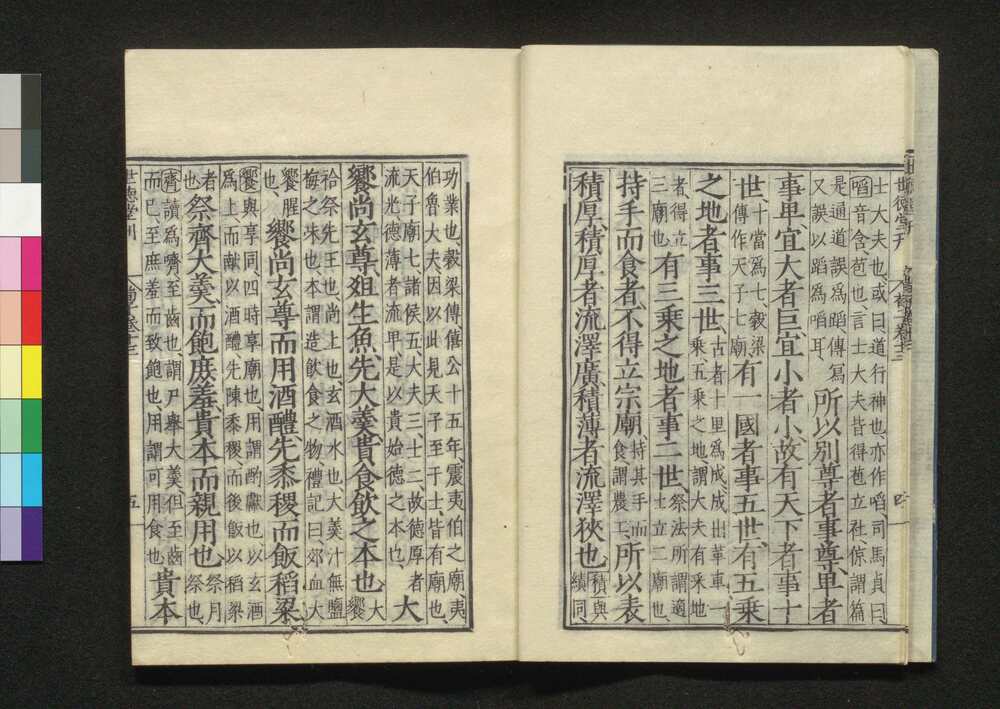 世德堂刊　荀子卷十三　四
士大夫也、或曰、道行神也、亦作啗司馬貞曰、
啗音含苞也、言士大夫皆得苞立社、倞謂
是通道誤爲蹈、傳寫
又誤以蹈爲啗耳、所以別尊者事尊、卑者
事卑、宜大者巨、宜小者小、故有天下者事十
世、十當爲七、穀梁
傳作天子七廟有一國者事五世、有五乘
之地者事三世、古者十里爲成、成出革車一
乘、五乘之地、謂大夫有采地
者、得立
三廟也、有三乘之地者事二世、祭法所謂適
士立二廟也、
持手而食者不得立宗廟、持其手而
食謂農工、所以表
積厚、積厚者流澤廣、積薄者流澤狹也、積與
績同、
功業也、穀梁傳僖公十五年、震夷伯之廟、夷
伯魯大夫、因以此見天子至于士、皆有廟也、
天子廟七、諸侯五、大夫三、士二、故德厚者
流光、德薄者流卑、是以貴始、德之本也、大
饗尚玄尊、俎生魚、先大羹、貴食飲之本也、大
饗
祫祭先王也、尚上也、玄酒水也、大羹汁無鹽
梅之味也、本謂造飲食之物、禮記曰、郊血大
饗腥
也、饗尚玄尊而用酒醴、先黍稷而飯稻粱、
饗與享同、四時享廟也、用謂酌獻也、以玄酒
爲上、而獻以酒醴、先陳黍稷而後飯以稻粱
者
也、祭齊大羹、而飽庶羞、貴本而親用也、祭月
祭也、
齊讀爲嚌、至齒也、謂尸舉大羹、但至齒
而已、至庶羞而致飽也、用謂可用食也、貴本
世德堂刊　荀子卷十三　五